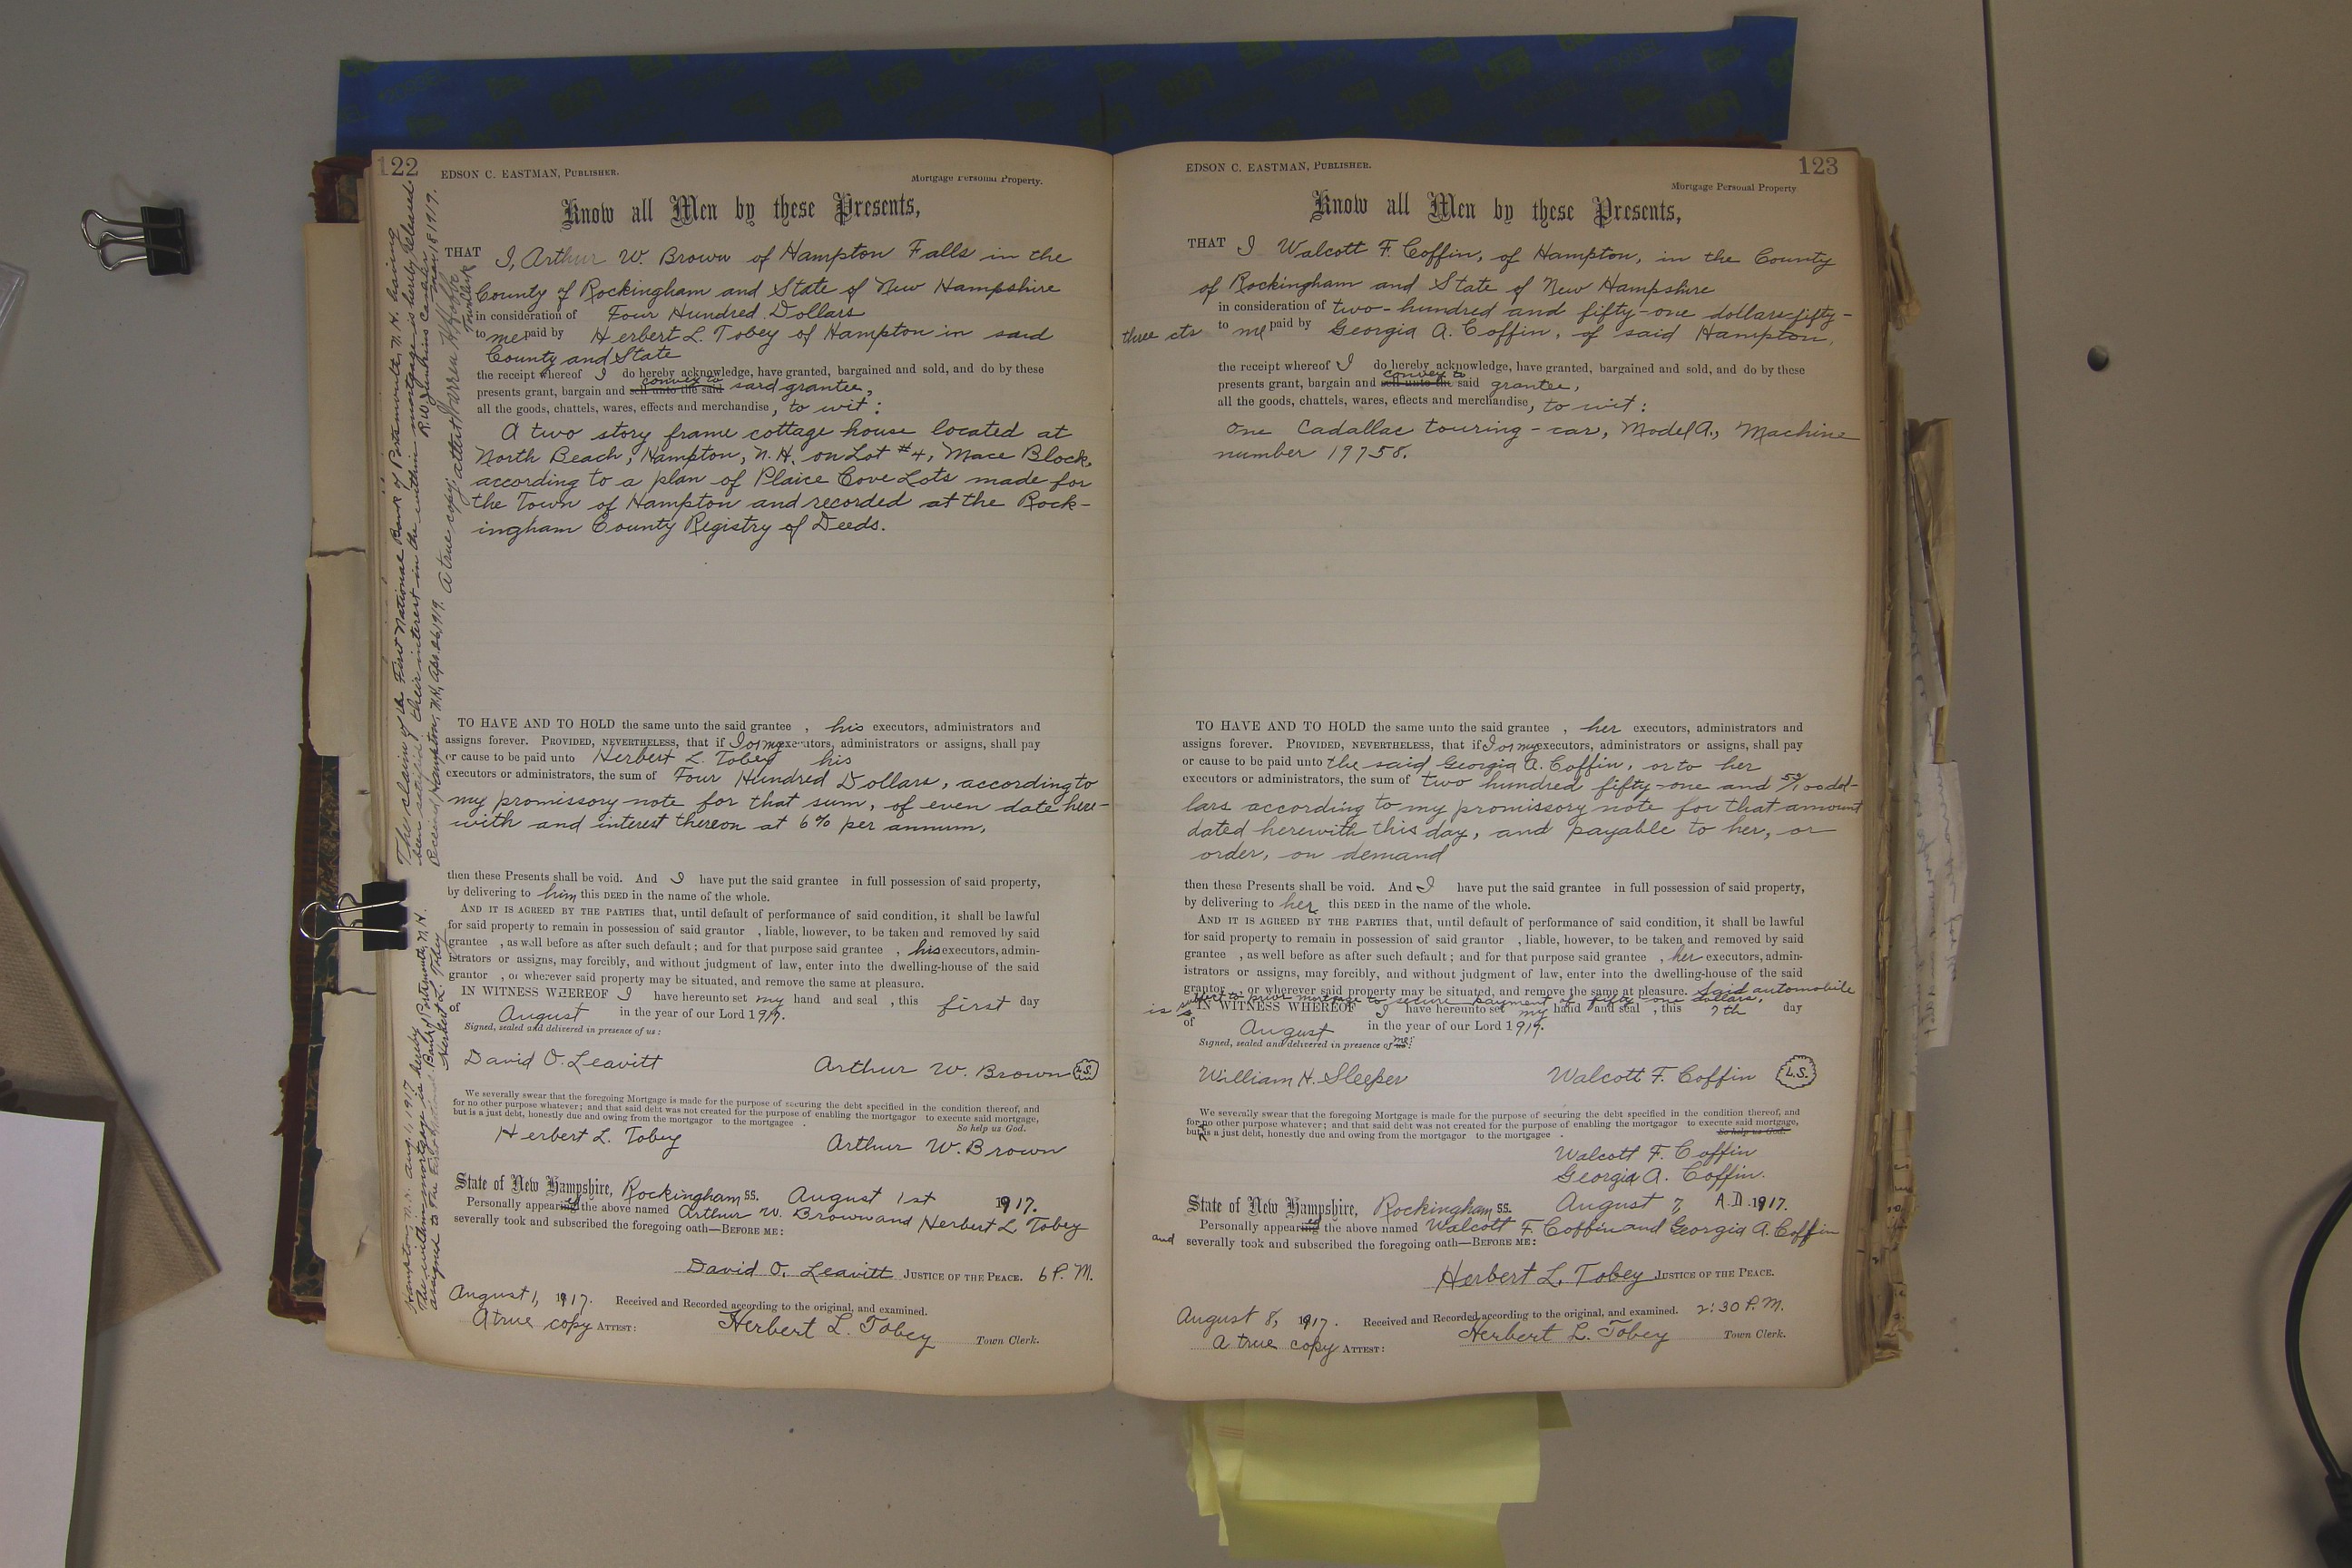 122
EDSON C. EASTMAN, PUBLISHER.
Mortgage Personal Property.
Know all Men by these Presents,
THAT I, Arthur W. Brown of Hampton Falls in the
County of Rockingham and State of New Hampshire
in consideration of Four Hundred Dollars
to me paid by Herbert L. Tobey of Hampton in said
County and State
the receipt whereof I do hereby acknowledge, have granted, bargained and sold, and do by these
convey to
presents grant, bargain and sell unto the said said grantee,
all the goods, chattels, wares, effects and merchandise, to wit:
A two story frame cottage house located at
North Beach, Hampton, N.H. on Lot #4, Mace Block,
according to a plan of Plaice Cove Lots made for
the Town of Hampton and recorded at the Rock-
ingham County Registry of Deeds.
TO HAVE AND TO HOLD the same unto the said grantee , his executors, administrators and
assigns forever. PROVIDED, NEVERTHELESS, that if I or my executors, administrators or assigns, shall pay
or cause to be paid unto Herbert L. Tobey his
executors or administrators, the sum of Four Hundred Dollars, according to
my promissory note for that sum, of even date here-
with and interest thereon at 6% per annum,
then these Presents shall be void. And I have put the said grantee in full possession of said property,
by delivering to him this DEED in the name of the whole.
AND IT IS AGREED BY THE PARTIES that, until default of performance of said condition, it shall be lawful
for said property to remain in possession of said grantor , liable, however, to be taken and removed by said
grantee , as well before as after such default; and for that purpose said grantee , his executors, admin-
istrators or assigns, may forcibly, and without judgment of law, enter into the dwelling-house of the said
grantor , or wherever said property may be situated, and remove the same at pleasure.
IN WITNESS WHEREOF I have hereunto set my hand and seal , this first day
of August in the year of our Lord 1917.
Signed, sealed and delivered in presence of us:
David O. Leavitt Arthur W. Brown L.S.
We severally swear that the foregoing Mortgage is made for the purpose of securing the debt specified in the condition thereof, and
for no other purpose whatever; and that said debt was not created for the purpose of enabling the mortgagor to execute said mortgage,
but is a just debt, honestly due and owing from the mortgagor to the mortgagee .
So help us God.
Herbert L. Tobey Arthur W. Brown
State of New Hampshire, Rockingham ss. August 1st 1917.
Personally appearing the above named Arthur W. Brown and Herbert L. Tobey
severally took and subscribed the foregoing oath—BEFORE ME:
David O. Leavitt JUSTICE OF THE PEACE. 6 P.M.
August 1, 1917. Received and Recorded according to the original, and examined.
A true copy ATTEST: Herbert L. Tobey Town Clerk.
Hampton, N.H. Aug. 1, 1917
The within mortgage is hereby
assigned to the First National Bank of Portsmouth, N.H.
Herbert L. Tobey
The claim of the First National Bank of Portsmouth, N.H. having
been satisfied, their interest in the within mortgage is hereby released.
R.W. Junkins Cashier
Received Hampton, N.H. Apr. 26, 1919. A true copy, attest Warren H.
123
EDSON C. EASTMAN, PUBLISHER.
Mortgage Personal Property
Know all Men by these Presents,
THAT I Walcott F. Coffin, of Hampton, in the County
of Rockingham and State of New Hampshire
in consideration of two-hundred and fifty-one dollars fifty-
three cts to me paid by Georgia A. Coffin, of said Hampton,
the receipt whereof I do hereby acknowledge, have granted, bargained and sold, and do by these
convey to
presents grant, bargain and sell unto the said grantee,
all the goods, chattels, wares, effects and merchandise, to wit:
One Cadallac touring-car, Model A., Machine
number 19758.
TO HAVE AND TO HOLD the same unto the said grantee , her executors, administrators and
assigns forever. PROVIDED, NEVERTHELESS, that if I or my executors, administrators or assigns, shall pay
or cause to be paid unto the said Georgia A. Coffin, or to her
executors or administrators, the sum of two hundred fifty-one and 53/100 dol-
lars according to my promissory note for that amount
dated herewith this day, and payable to her, or
order, on demand
then these Presents shall be void. And I have put the said grantee in full possession of said property,
by delivering to her this DEED in the name of the whole.
AND IT IS AGREED BY THE PARTIES that, until default of performance of said condition, it shall be lawful
for said property to remain in possession of said grantor , liable, however, to be taken and removed by said
grantee , as well before as after such default; and for that purpose said grantee , her executors, admin-
istrators or assigns, may forcibly, and without judgment of law, enter into the dwelling-house of the said
grantor , or wherever said property may be situated, and remove the same at pleasure. Said automobile
is subject to prior mortgage to secure payment of fifty-one dollars.
IN WITNESS WHEREOF I have hereunto set my hand and seal , this 7th day
of August in the year of our Lord 1917.
Signed, sealed and delivered in presence of us: me:
William H. Sleeper Walcott F. Coffin L.S.
We severally swear that the foregoing Mortgage is made for the purpose of securing the debt specified in the condition thereof, and
for no other purpose whatever; and that said debt was not created for the purpose of enabling the mortgagor to execute said mortgage,
but is a just debt, honestly due and owing from the mortgagor to the mortgagee .
So help us God.
Walcott F. Coffin
Georgia A. Coffin.
State of New Hampshire, Rockingham ss. August 7, A.D. 1917.
Personally appearing the above named Walcott F. Coffin and Georgia A. Coffin
and severally took and subscribed the foregoing oath—BEFORE ME:
Herbert L. Tobey JUSTICE OF THE PEACE.
August 8, 1917. Received and Recorded according to the original, and examined. 2:30 P.M.
A true copy ATTEST: Herbert L. Tobey Town Clerk.